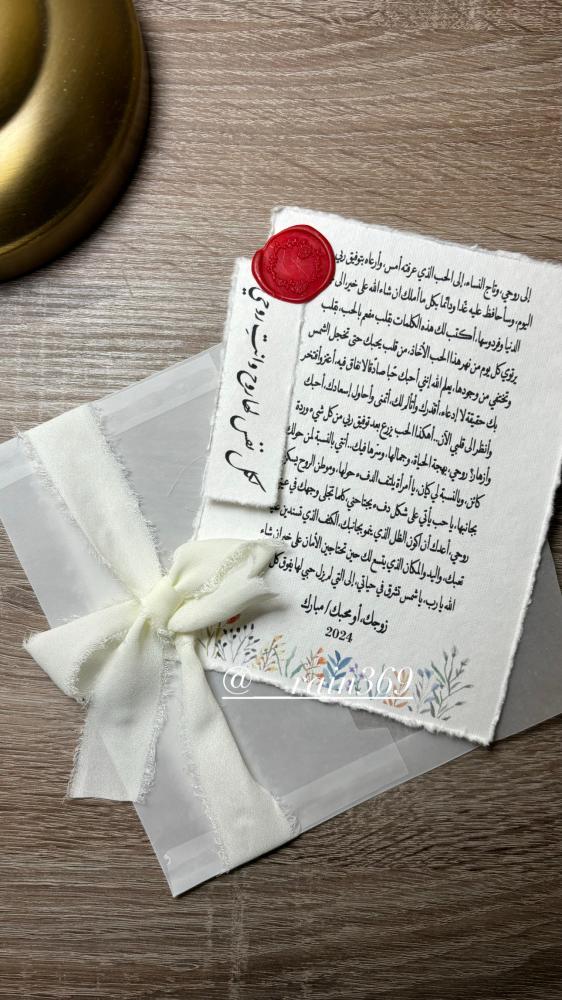 إلى روحي، وتاج النساء، إلى الحب الذي عرفته أمس، وأرعاه بتوفيق ربي
اليوم، وسأحافظ عليه غدا ودائما بكل ما أملك ان شاء الله على خير، إلى
الدنيا وفردوسها، أكتب لك هذه الكلمات بقلب مفعم بالحب، بقلب
يرتوي كل يوم من نهر هذا الحب الأخاذ، من قلب يحبك حتى تخجل الشمس
وتختفي من وجودها، يعلم الله إنني أحبك حبا صادقا لا نفاق فيه، أعتز وأفتخر
بك حقيقة لا إدعاء، أقدرك وأتأثر لك، أتمنى وأحاول اسعادك، أحبك
وانظر الى قلبي الآن.. أهكذا الحب يزرع بعد توفيق ربي من كل شيء وردة
وأزهارا! روحي، بهجة الحياة، وجمالها، وسرها فيك.. أنتي بالنسبة لمن حولك
كائن، وبالنسبة لي كيان، يا أمرأة يلتف الدفء حولها، وموطن الروح
بجانبها، يا حب يأتي على شكل دفء يجتاحني كلما تجلى وجهك في
روحي، أعدك أن أكون الظل الذي يغفو بجانبك، الكتف الذي تسندين
تعبك، واليد والمكان الذي يتسع لك حين تحتاجين الأمان على خير إن شاء
الله يا رب، يا شمس تشرق في حياتي، إلى التي لم يزل حبي لها يفوق كل
زوجك، أو محبك / مبارك
2024
كل نفس لها روح وانتِ روحي
@__rain369